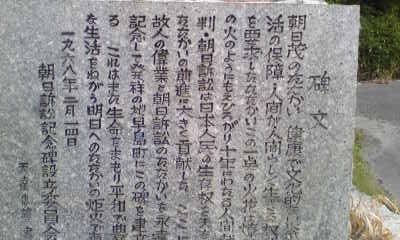 碑文
朝日茂のたたかい、健康で文化的な
活の保障、人間が人間らしく生きる权
を要求したたたかいこの一点の火は燎
の火のようにもえひろがり十年にわたる人間
判・朝日訴訟は日本人民の生存权を
たたかいの前進に大きく貢献した。ここに
故人の偉業と朝日訴訟のたたかいを永遠
記念して発祥の地早島町にこの碑を建立
る これはまた生命をまもり平和で豊
な生活をねがう明日へのたたかいの炬火で
一九六八年二月一四日
朝日訴訟記念碑設立委員会